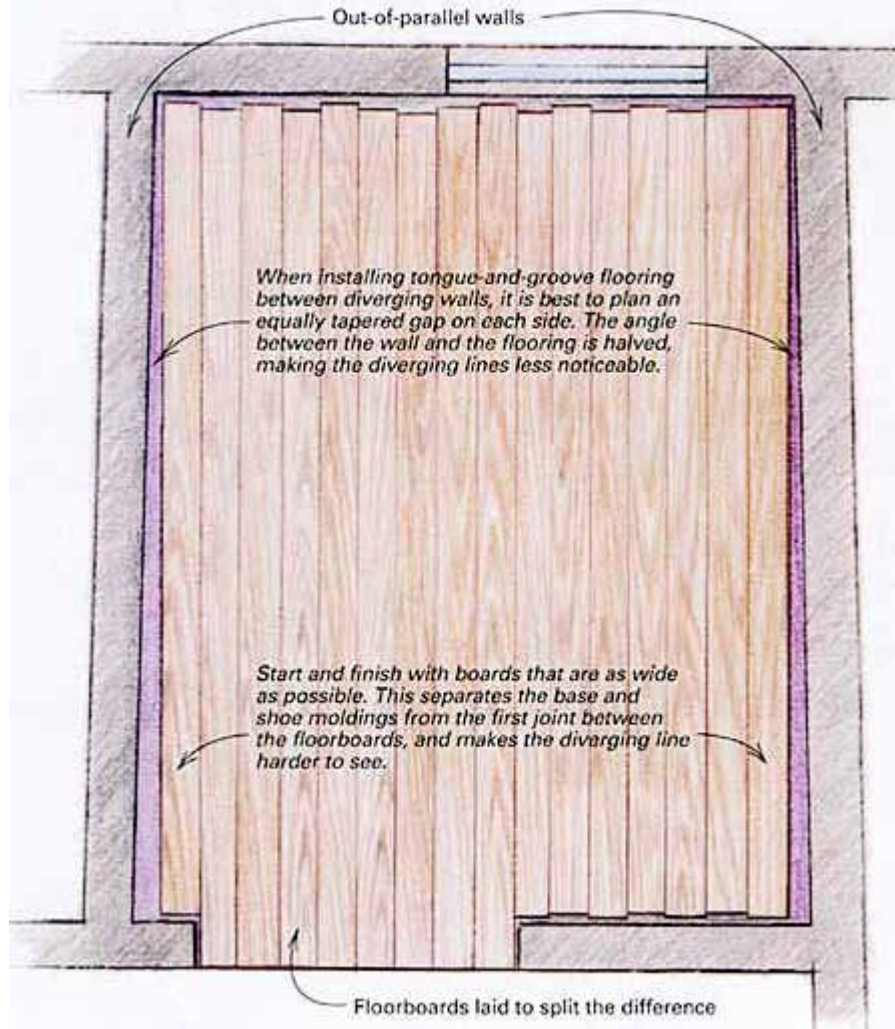 Out-of-parallel walls
When installing tongue-and-groove flooring
between diverging walls, it is best to plan an
equally tapered gap on each side. The angle
between the wall and the flooring is halved,
making the diverging lines less noticeable.
Start and finish with boards that are as wide
as possible. This separates the base and
shoe moldings from the first joint between
the floorboards, and makes the diverging line
harder to see.
Floorboards laid to split the difference